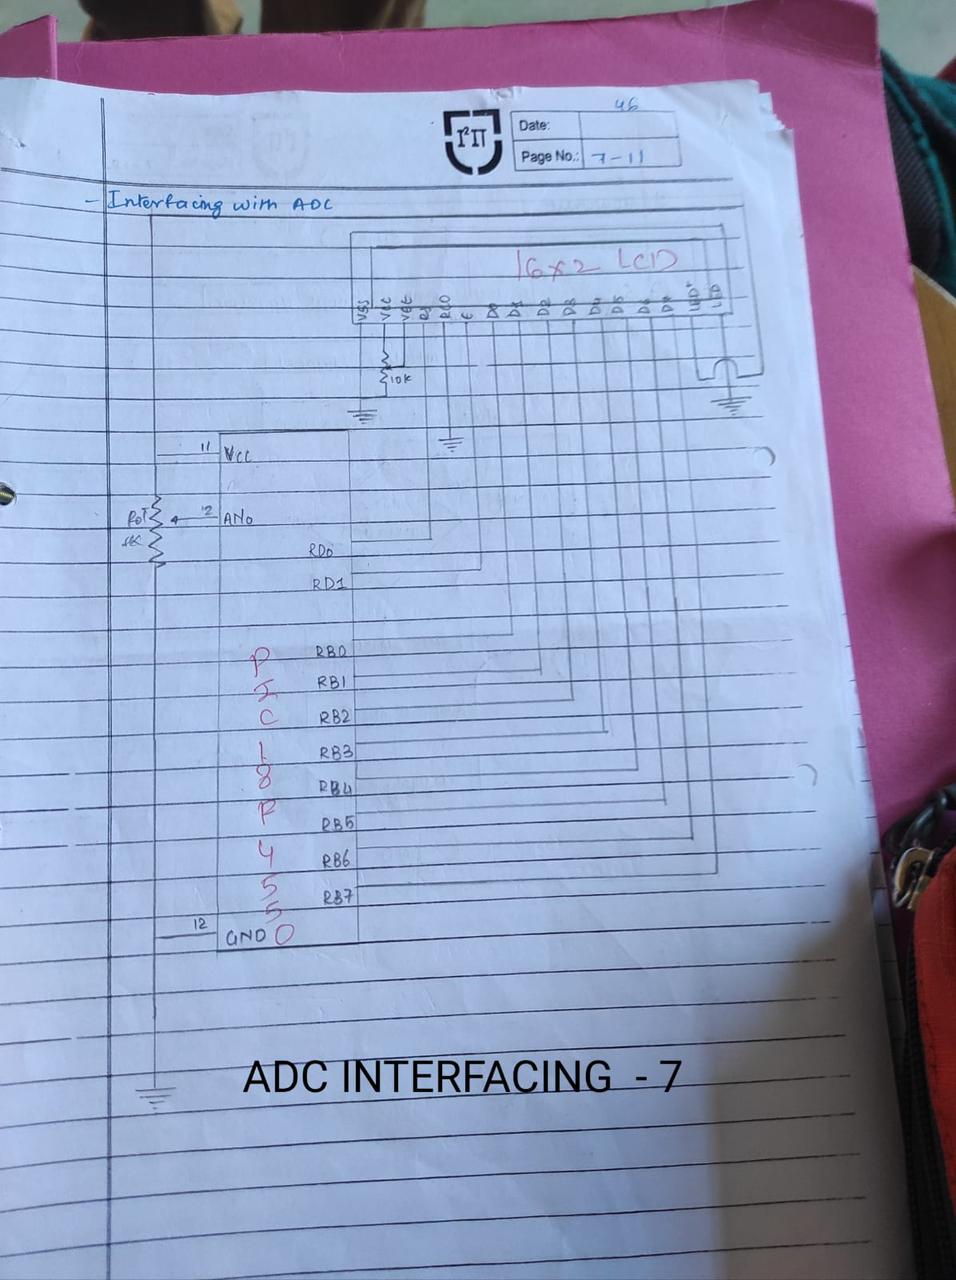 46
I²Π
Date:
Page No.: 7-11
- Interfacing with ADC
16x2 LCD
VSS VCC VEE RS E D0 D1 D2 D3 D4 D5 D6 D7 LED+ LED-
10K
11 VCC
POT 2 AN0
RD0
RD1
RB0
RB1
RB2
RB3
RB4
RB5
RB6
RB7
PIC18F4550
12 GND
ADC INTERFACING - 7